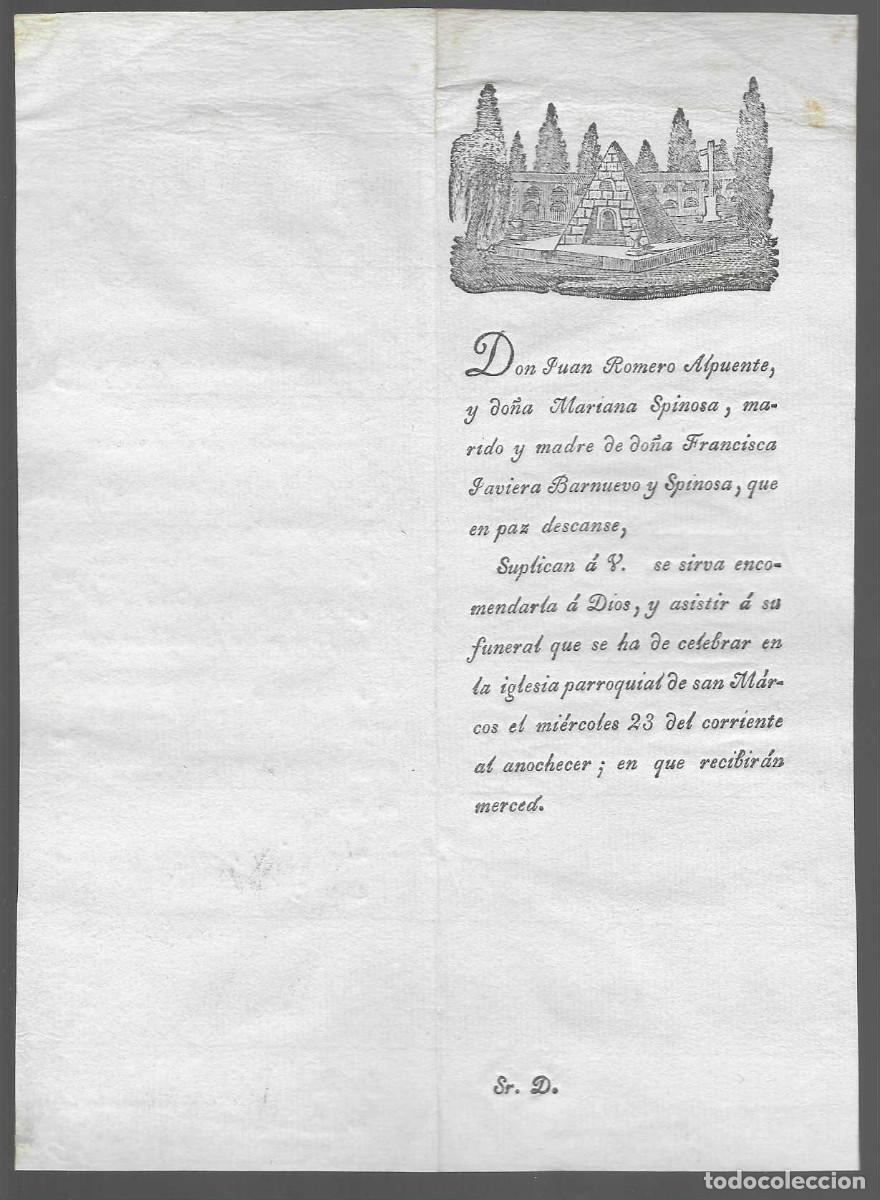 Don Juan Romero Alpuente,
y doña Mariana Spinosa, ma-
rido y madre de doña Francisca
Javiera Barnuevo y Spinosa, que
en paz descanse,
Suplican á V. se sirva enco-
mendarla á Dios, y asistir á su
funeral que se ha de celebrar en
la iglesia parroquial de san Már-
cos el miércoles 23 del corriente
al anochecer; en que recibirán
merced.
Sr. D.
todocoleccion